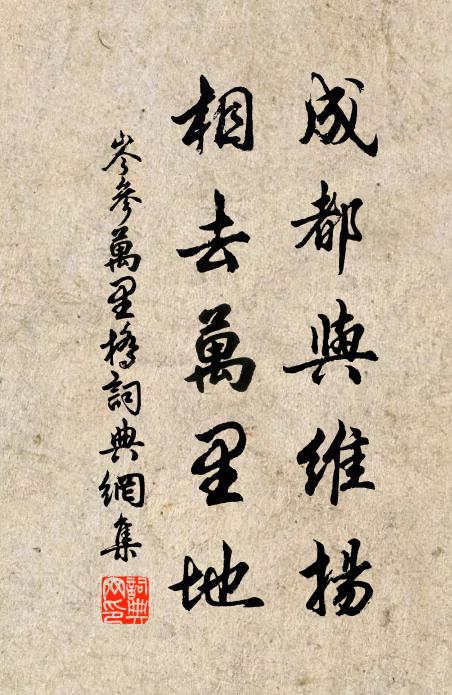 成都與維揚
相去萬里地
岑參萬里橋詞典網集
詞典網印